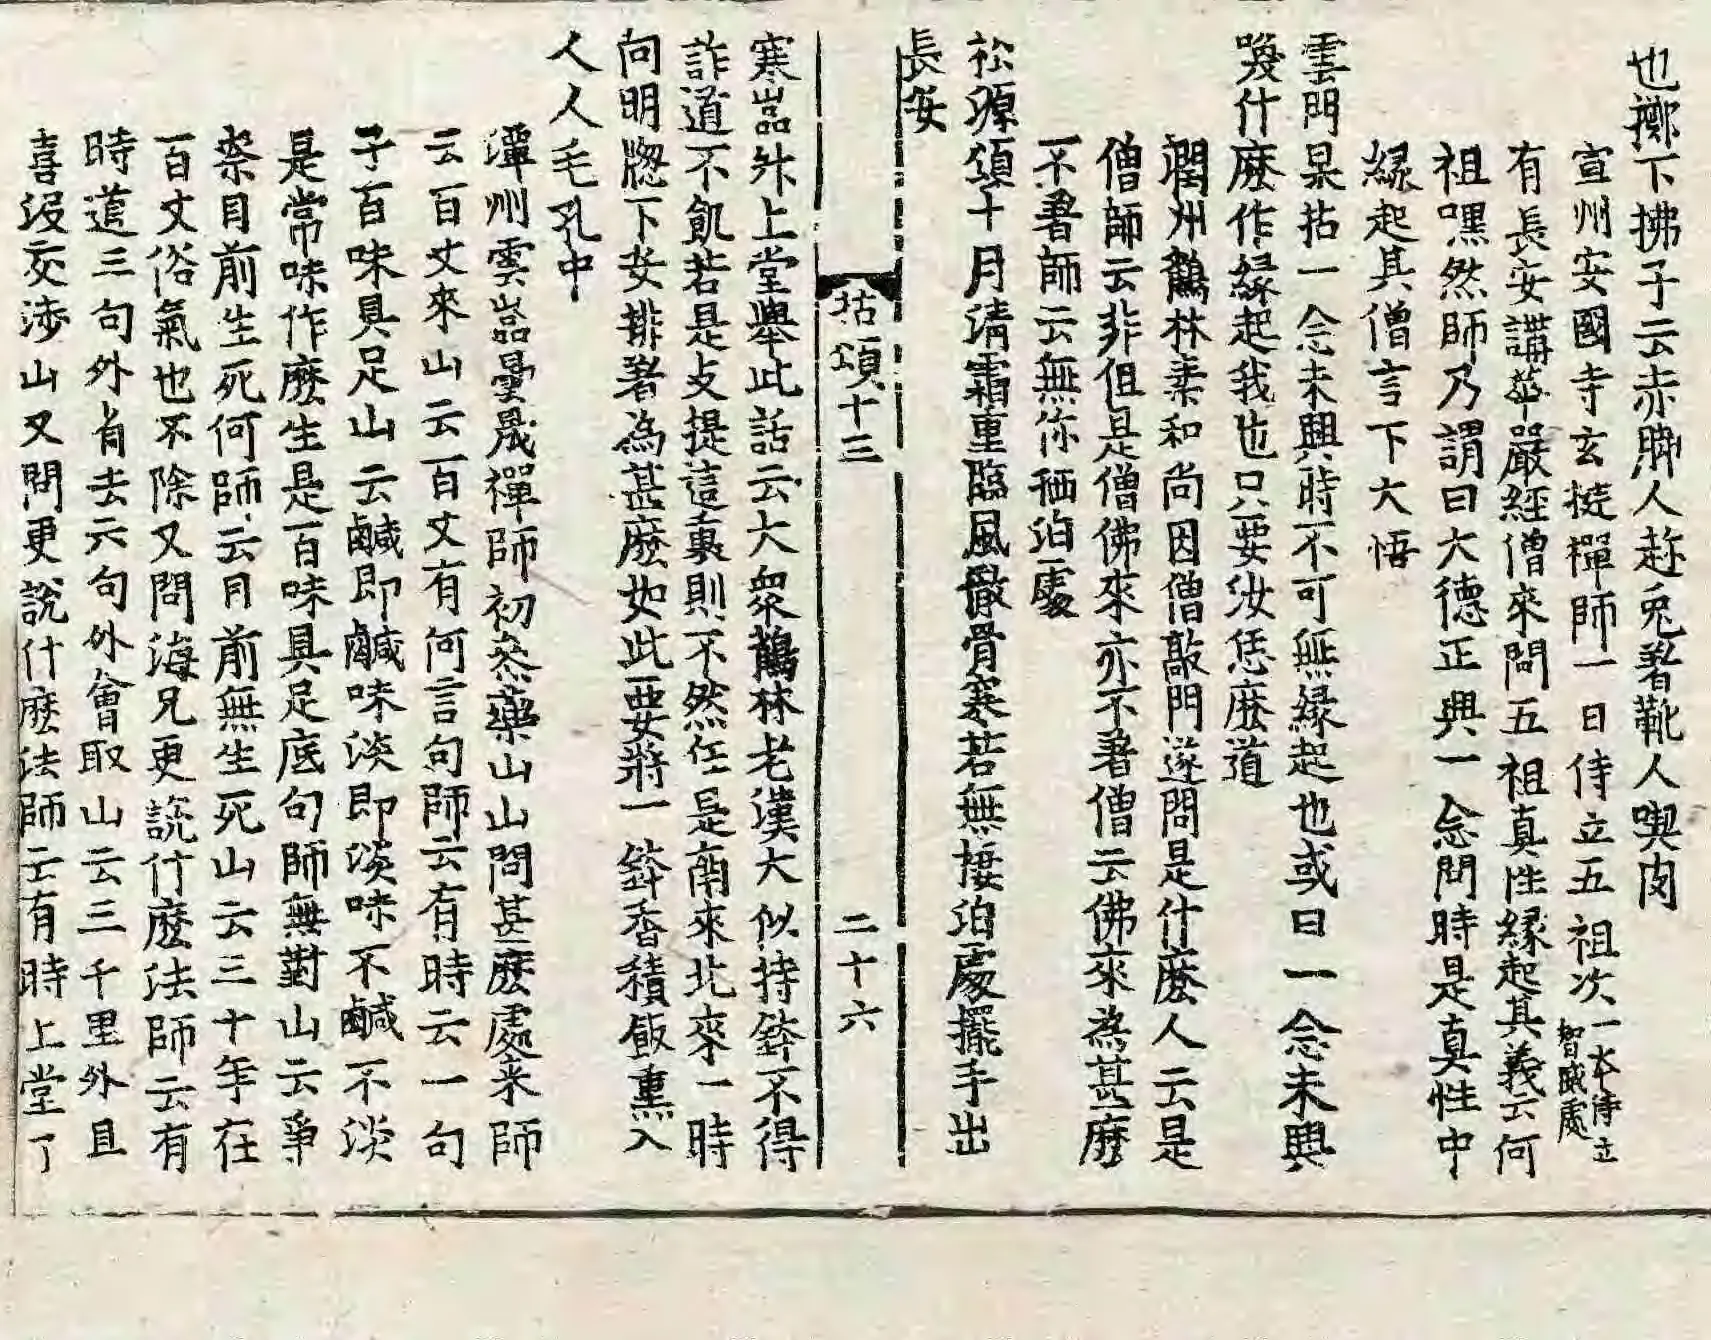 也擲下拂子云赤脚人趂兎著靴人喫肉
宣州安國寺玄挺禪師一日侍立五祖次一本侍立智威處
有長安講華嚴經僧來問五祖真性緣起其義云何
祖嘿然師乃謂曰大德正興一念問時是真性中
緣起其僧言下大悟
雲門杲拈一念未興時不可無緣起也或曰一念未興
喚什麽作緣起我也只要汝恁麽道
潤州鶴林素和尚因僧敲門遂問是什麽人云是
僧師云非但是僧佛來亦不著僧云佛來為甚麽
不著師云無你栖泊處
松源頌十月淸霜重臨風徹骨寒若無棲泊處擺手出
長安
拈頌十三 二十六
寒嵓升上堂舉此話云大衆鶴林老漢大似持鉢不得
詐道不飢若是攴提這裏則不然任是南來北來一時
向明牕下安排著為甚麽如此要將一鉢香積飯熏入
人人毛孔中
潭州雲嵓曇晟禪師初叅藥山山問甚麽處来師
云百丈來山云百丈有何言句師云有時云一句
子百味具足山云鹹即鹹味淡即淡味不鹹不淡
是常味作麽生是百味具足底句師無對山云爭
柰目前生死何師云目前無生死山云二十年在
百丈俗氣也不除又問海兄更說什麽法師云有
時道三句外省去六句外會取山云三千里外且
喜沒交涉山又問更說什麽法師云有時上堂了